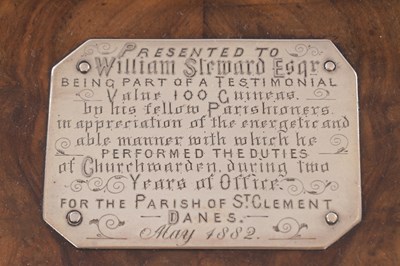 PRESENTED TO
William Steward Esqr
BEING PART OF A TESTIMONIAL
Value 100 Guineas.
by his fellow Parishioners,
in appreciation of the energetic and
able manner with which he
PERFORMED THE DUTIES
of Churchwarden, during two
Years of Office,
FOR THE PARISH OF ST CLEMENT
DANES.
May 1882.